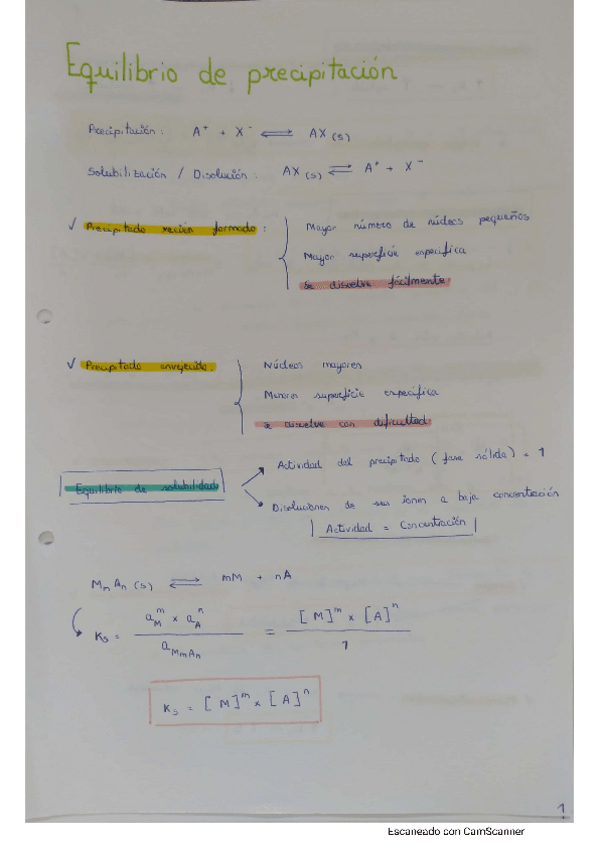 Equilibrio de precipitación
Precipitación: A⁺ + X⁻ ⇌ AX (s)
Solubilización / Disolución: AX (s) ⇌ A⁺ + X⁻
✓ Precipitado recién formado:
Mayor número de núcleos pequeños
Mayor superficie específica
Se disuelve fácilmente
✓ Precipitado envejecido:
Núcleos mayores
Menor superficie específica
Se disuelve con dificultad
Equilibrio de solubilidad
Actividad del precipitado (fase sólida) = 1
Disoluciones de sus iones a baja concentración
Actividad = Concentración
MmAn (s) ⇌ mM + nA
Ks = (a_M^m × a_A^n) / a_MmAn = ([M]^m × [A]^n) / 1
Ks = [M]^m × [A]^n
1
Escaneado con CamScanner